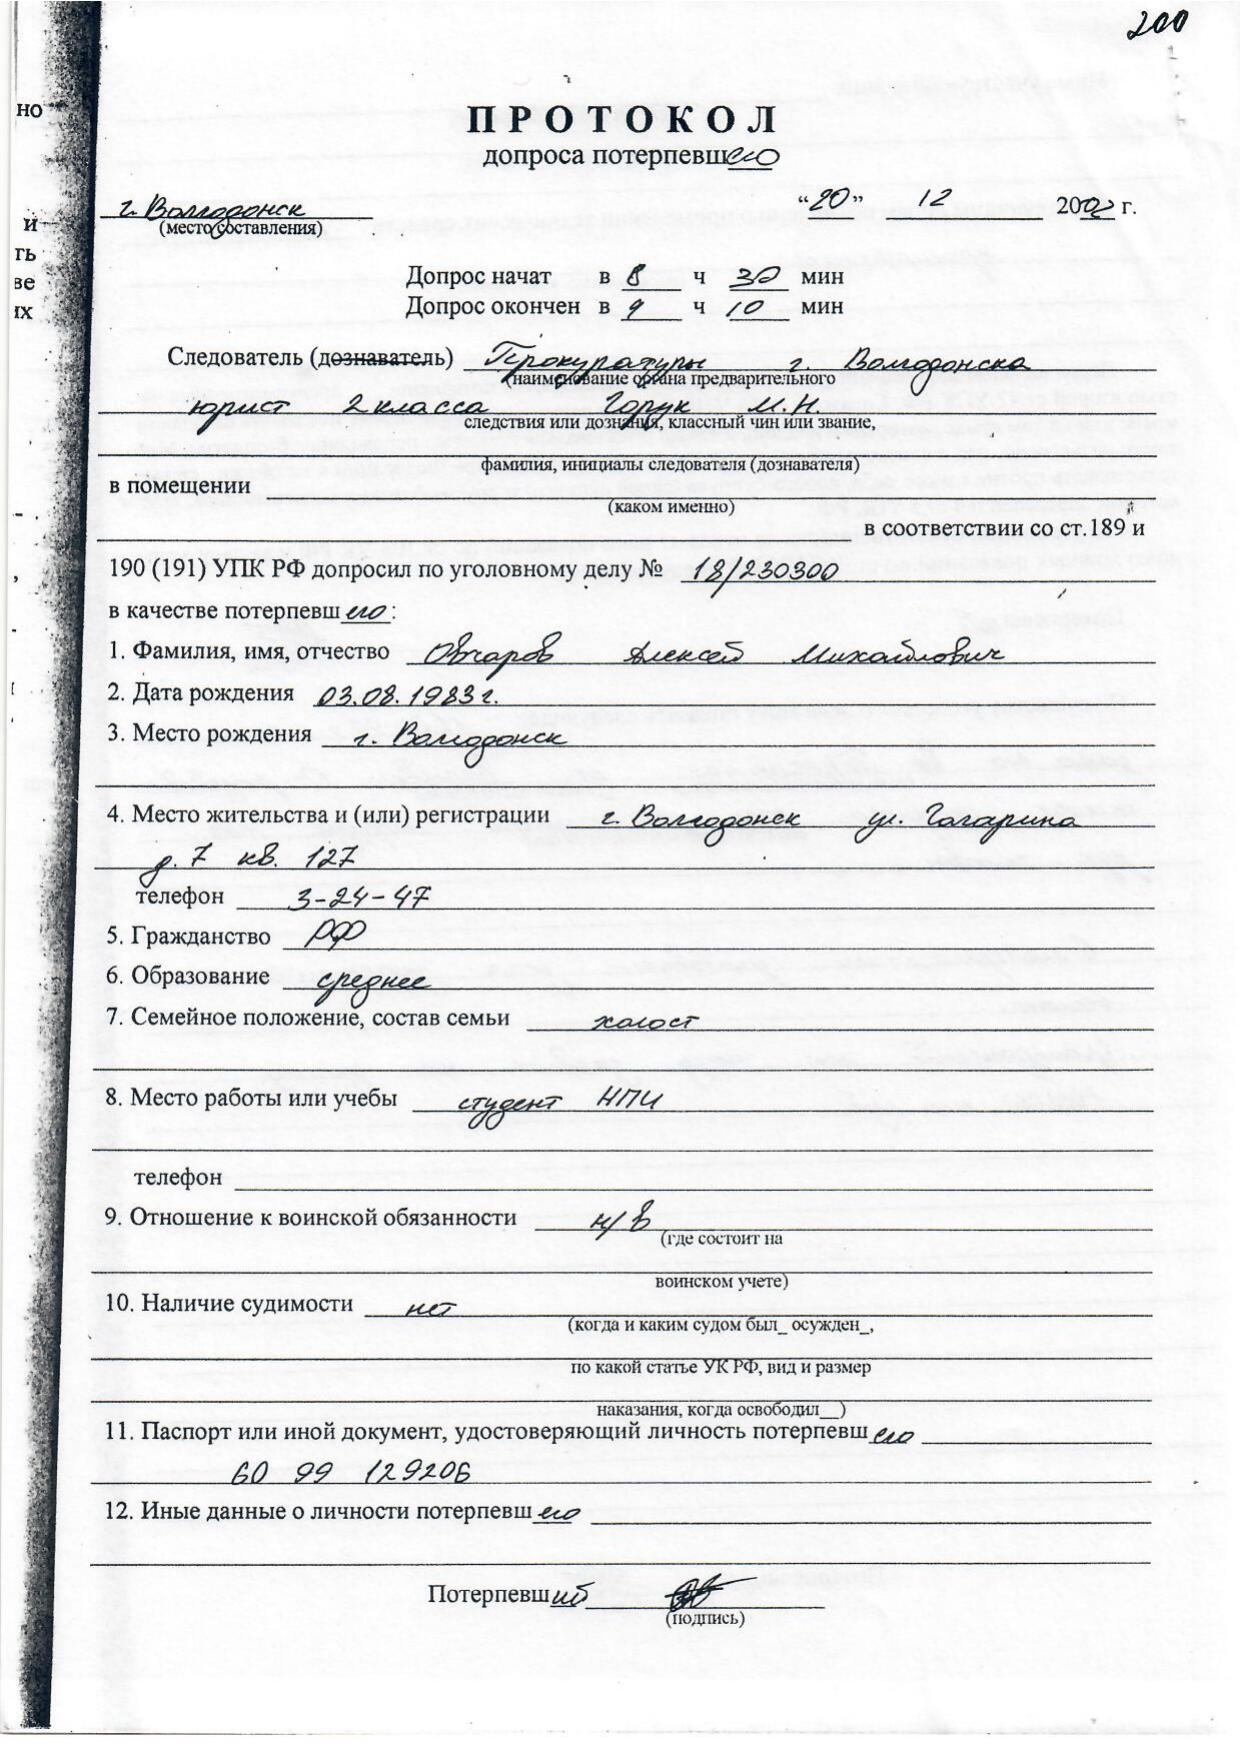 200
но
и
ть
ве
их
ПРОТОКОЛ
допроса потерпевшего
г. Волгодонск "20" 12 2002 г.
(место составления)
Допрос начат в 8 ч 30 мин
Допрос окончен в 9 ч 10 мин
Следователь (дознаватель) Прокуратуры г. Волгодонска
(наименование органа предварительного
юрист 2 класса Горук М.Н.
следствия или дознания, классный чин или звание,
фамилия, инициалы следователя (дознавателя)
в помещении
(каком именно)
в соответствии со ст.189 и
190 (191) УПК РФ допросил по уголовному делу № 18/230300
в качестве потерпевшего:
1. Фамилия, имя, отчество Овчаров Алексей Михайлович
2. Дата рождения 03.08.1983 г.
3. Место рождения г. Волгодонск
4. Место жительства и (или) регистрации г. Волгодонск ул. Гагарина
д. 7 кв. 127
телефон 3-24-47
5. Гражданство РФ
6. Образование среднее
7. Семейное положение, состав семьи холост
8. Место работы или учебы студент НПИ
телефон
9. Отношение к воинской обязанности н/в
(где состоит на
воинском учете)
10. Наличие судимости нет
(когда и каким судом был_ осужден_,
по какой статье УК РФ, вид и размер
наказания, когда освободил__)
11. Паспорт или иной документ, удостоверяющий личность потерпевшего
60 99 129206
12. Иные данные о личности потерпевшего
Потерпевший
(подпись)